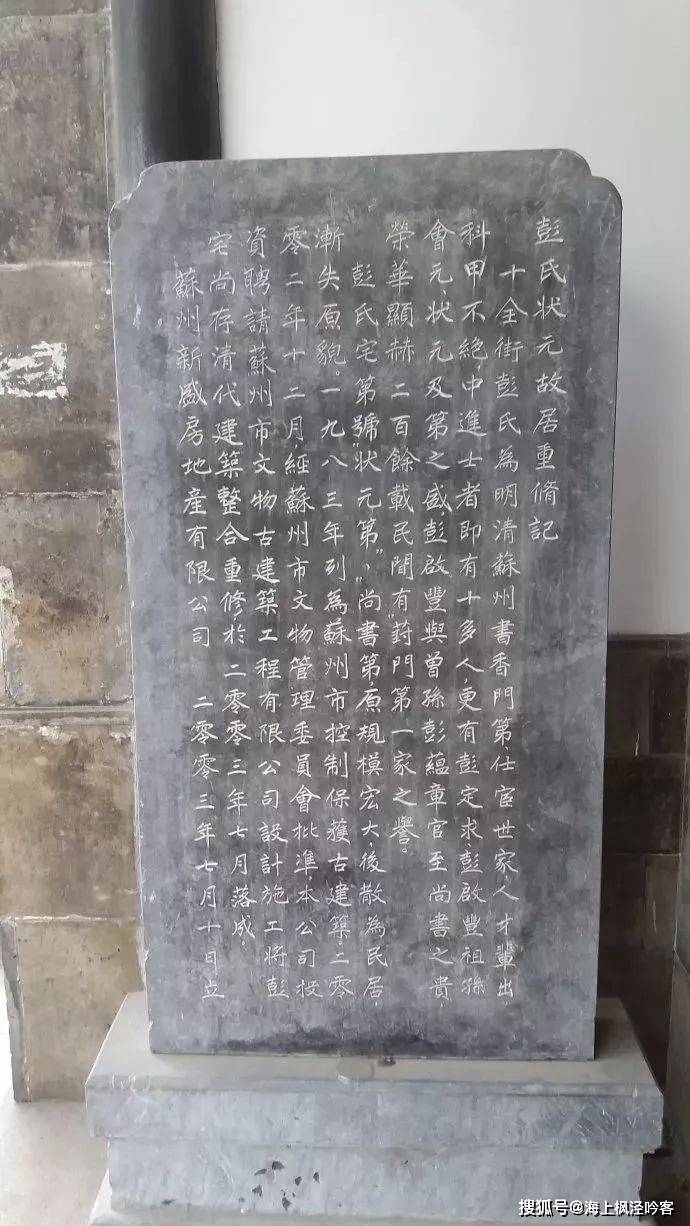 彭氏狀元故居重脩記
十全街彭氏為明清蘇州書香門第，仕宦世家，人才輩出
科甲不絕，中進士者即有十多人，更有彭定求、彭啟豐祖孫
會元狀元及第之盛，彭啟豐與曾孫彭蘊章官至尚書之貴，
榮華顯赫二百餘載民間有“葑門第一家之譽。
彭氏宅第號“狀元第”、“尚書第，原規模宏大，後散為民居，
漸失原貌。一九八三年列為蘇州市控制保護古建築，二零
零二年十二月，經蘇州市文物管理委員會批準，本公司投
資聘請蘇州市文物古建築工程有限公司設計施工將彭
宅尚存清代建築整合重修，於二零零三年七月落成，
蘇州新盛房地產有限公司 二零零三年七月十日立
搜狐号@海上枫泾吟客